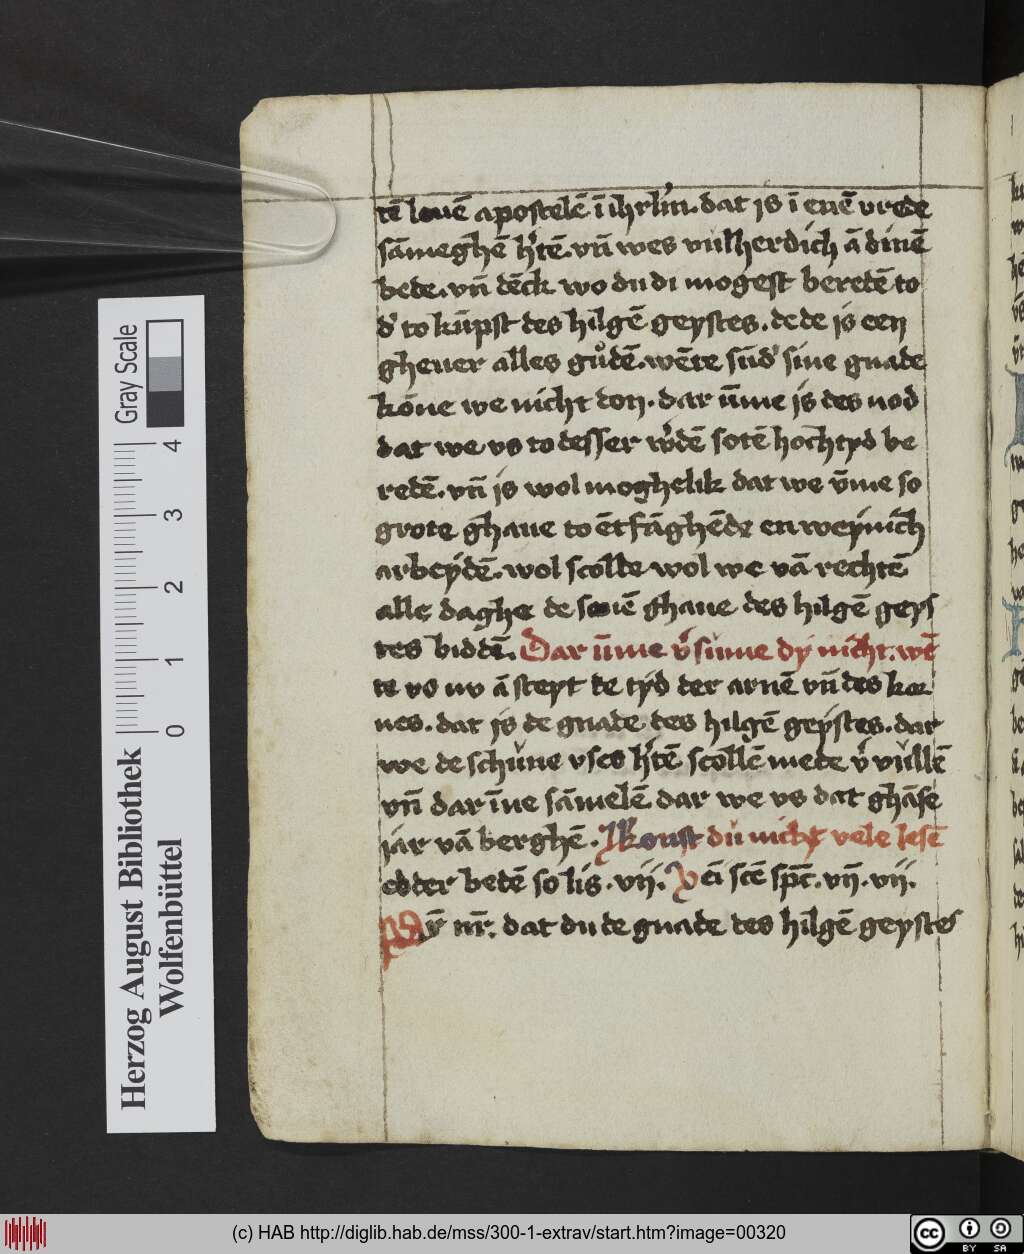 tē leuē apostelē ī ihrlm̄. dat is ī enē vrede
sāmeghē h'tē. vn̄ wes vulherdich ā dinē
bede. vn̄ dēck wo du di mogest beredē to
d' to kūpst des hilgē geystes. de de is een
gheuer alles gůdē. wēte sūd' sine gnade
kōne we nicht don. dar ūme is des nod
dat we vs to desser w'dē sotē hochtyd be
redē. vn̄ is wol moghelik dat we v̄me so
grote ghaue to ētfāghēde en weynich
arbeydē. wol scolde wol we vā rechtē
alle daghe de seuē ghaue des hilgē geys
tes biddē. Dar ūme v'sume dy nicht. wē
te vs nv ā steyt de tyd der arnē vn̄ des kor
nes. dat is de gnade des hilgē geystes. dar
we de schune vses h'tē scollē mede v' vullē
vn̄ dar īne sāmelē dar we vs dat ghāse
iar vā berghē. Konst du nicht vele lesē
edder bedē so lis. vij. Uēi scē spc̄. vn̄. vij.
Pr̄ nr̄. dat du de gnade des hilgē geystes
Herzog August Bibliothek
Wolfenbüttel
Gray Scale
0 1 2 3 4
(c) HAB http://diglib.hab.de/mss/300-1-extrav/start.htm?image=00320
cc BY SA